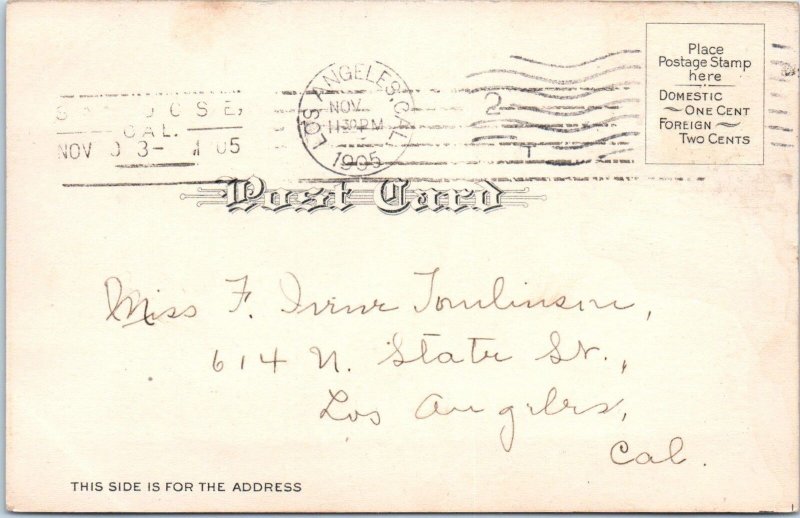 SAN JOSE,
CAL.
NOV 3- 1905
LOS ANGELES, CAL.
NOV
11-30 PM
1905
2
T
Place
Postage Stamp
here
DOMESTIC
ONE CENT
FOREIGN
TWO CENTS
Post Card
Miss F. Irene Tomlinson,
614 N. State St.,
Los Angeles,
Cal.
THIS SIDE IS FOR THE ADDRESS